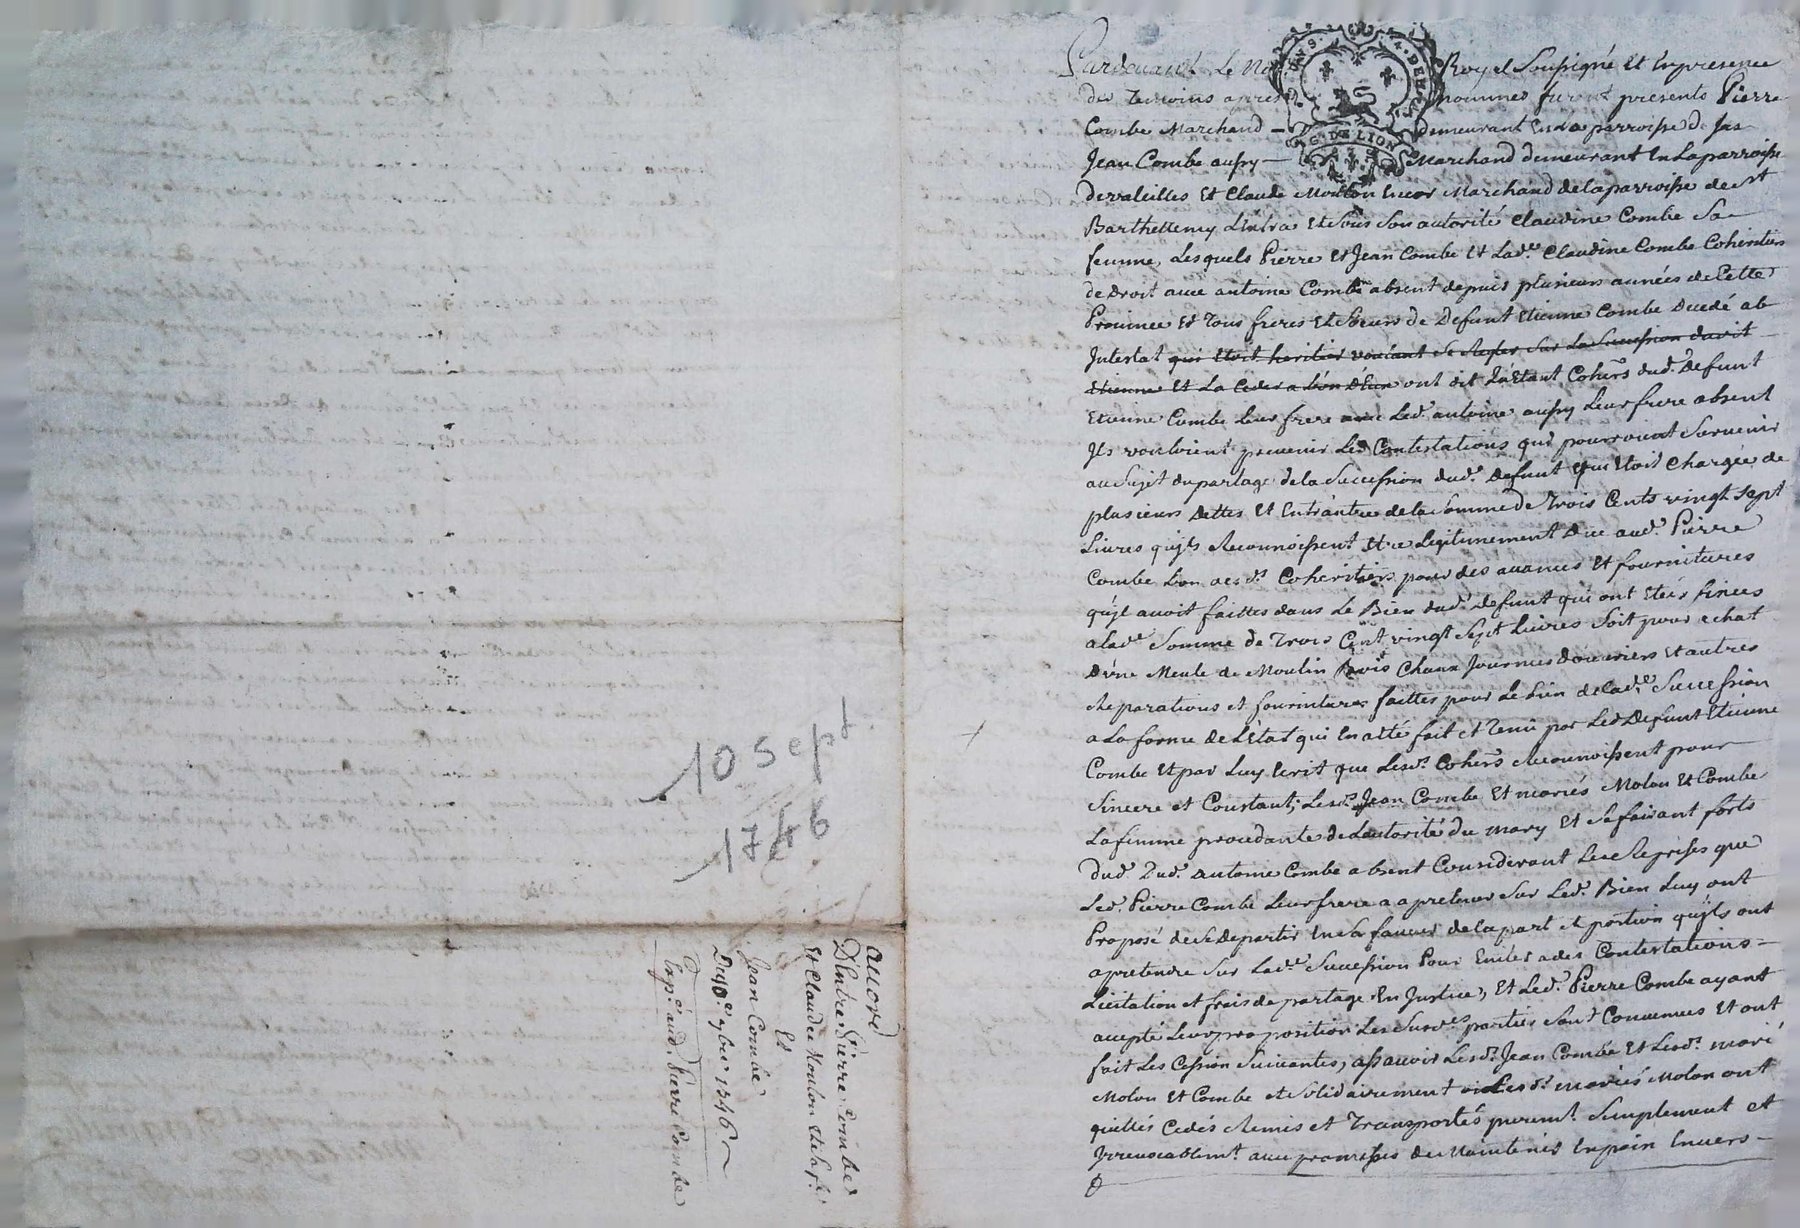 10 Sept
1746
accord
D'Entre Pierre Combe
Et Claude Moulon et sa fe.
Et
Jean Combe
Du 10e 7bre 1746
Exp.on aud. Pierre Combe
GEN. DE LION
Pardevant Le No Royal Soussigné Et En presence
des Temoins apres nommés furent presents Pierre
Combe Marchand - demeurant En La parroisse de Jas
Jean Combe aussy - Marchand demeurant En La parroisse
de valeilles Et Claude Moulon Encor Marchand de la parroisse de St
Barthellemy Lestra Et Sous Son autorité Claudine Combe Sa
femme, Lesquels Pierre Et Jean Combe Et Lad.e Claudine Combe Coheritiers
de Droit avec antoine Combe absent depuis plusieurs années de Cette
Province Et Tous freres Et Soeurs de Defunt Etienne Combe Decedé ab
Intestat qui Etoit heritier voulant Se Regler Sur La Succession dudit
Etienne Et La Ceder a L'un D'Eux ont dit qu'Etant Cohers. dud. Defunt
Etienne Combe Leur frere avec Led. antoine aussy Leur frere absent
Ils vouloient prevenir Les Contestations qui pourroient Survenir
au Sujet du partage de la Succession dud. Defunt qui Etoit Chargée de
plusieurs Dettes Et Entr'autre de la Somme de Trois Cents vingt Sept
Livres qu'jls Reconnoissent Etre Legitimement Due aud. Pierre
Combe L'un desd.s Coheritiers pour des avances Et fournitures
qu'jl avoit faittes dans Le Bien dud. defunt qui ont Etées fixées
a Lad.e Somme de Trois Cent vingt Sept Livres Soit pour achat
D'une Meule de Moulin Bois Chaux Journées d'ouvriers Et autres
Reparations et fournitures faittes pour Le bien de lad.e Succession
a La forme de L'Etat qui En a eté fait et Tenu par Led Defunt Etienne
Combe Et par Luy Ecrit que Lesd.s Cohers Reconnoissent pour
Sincere et Constant; Lesd.s Jean Combe Et mariés Molon Et Combe
La femme procedante de L'autorité du mary Et Se faisant forts
dud. Antoine Combe absent Considerant Les Reprises que
Led. Pierre Combe Leur frere a a prelever Sur Led. Bien Luy ont
Proposé de Se departir En Sa faveur de la part et portion qu'jls ont
a pretendre Sur Lad.e Succession Pour Eviter a des Contestations
Licitation et frais de partage En Justice, Et Led. Pierre Combe ayant
accepté Leur proposition Les Susd.es parties Sont Convenues Et ont
fait Les Cession Suivantes, assavoir Lesd.s Jean Combe Et Lesd.s marié
Molon Et Combe Solidairement Lesd.s mariés Molon ont
quittés Cedés Remis et Transportés purem.t Simplement et
Irrevocablem.t avec promesses de Maintenir En paix Envers